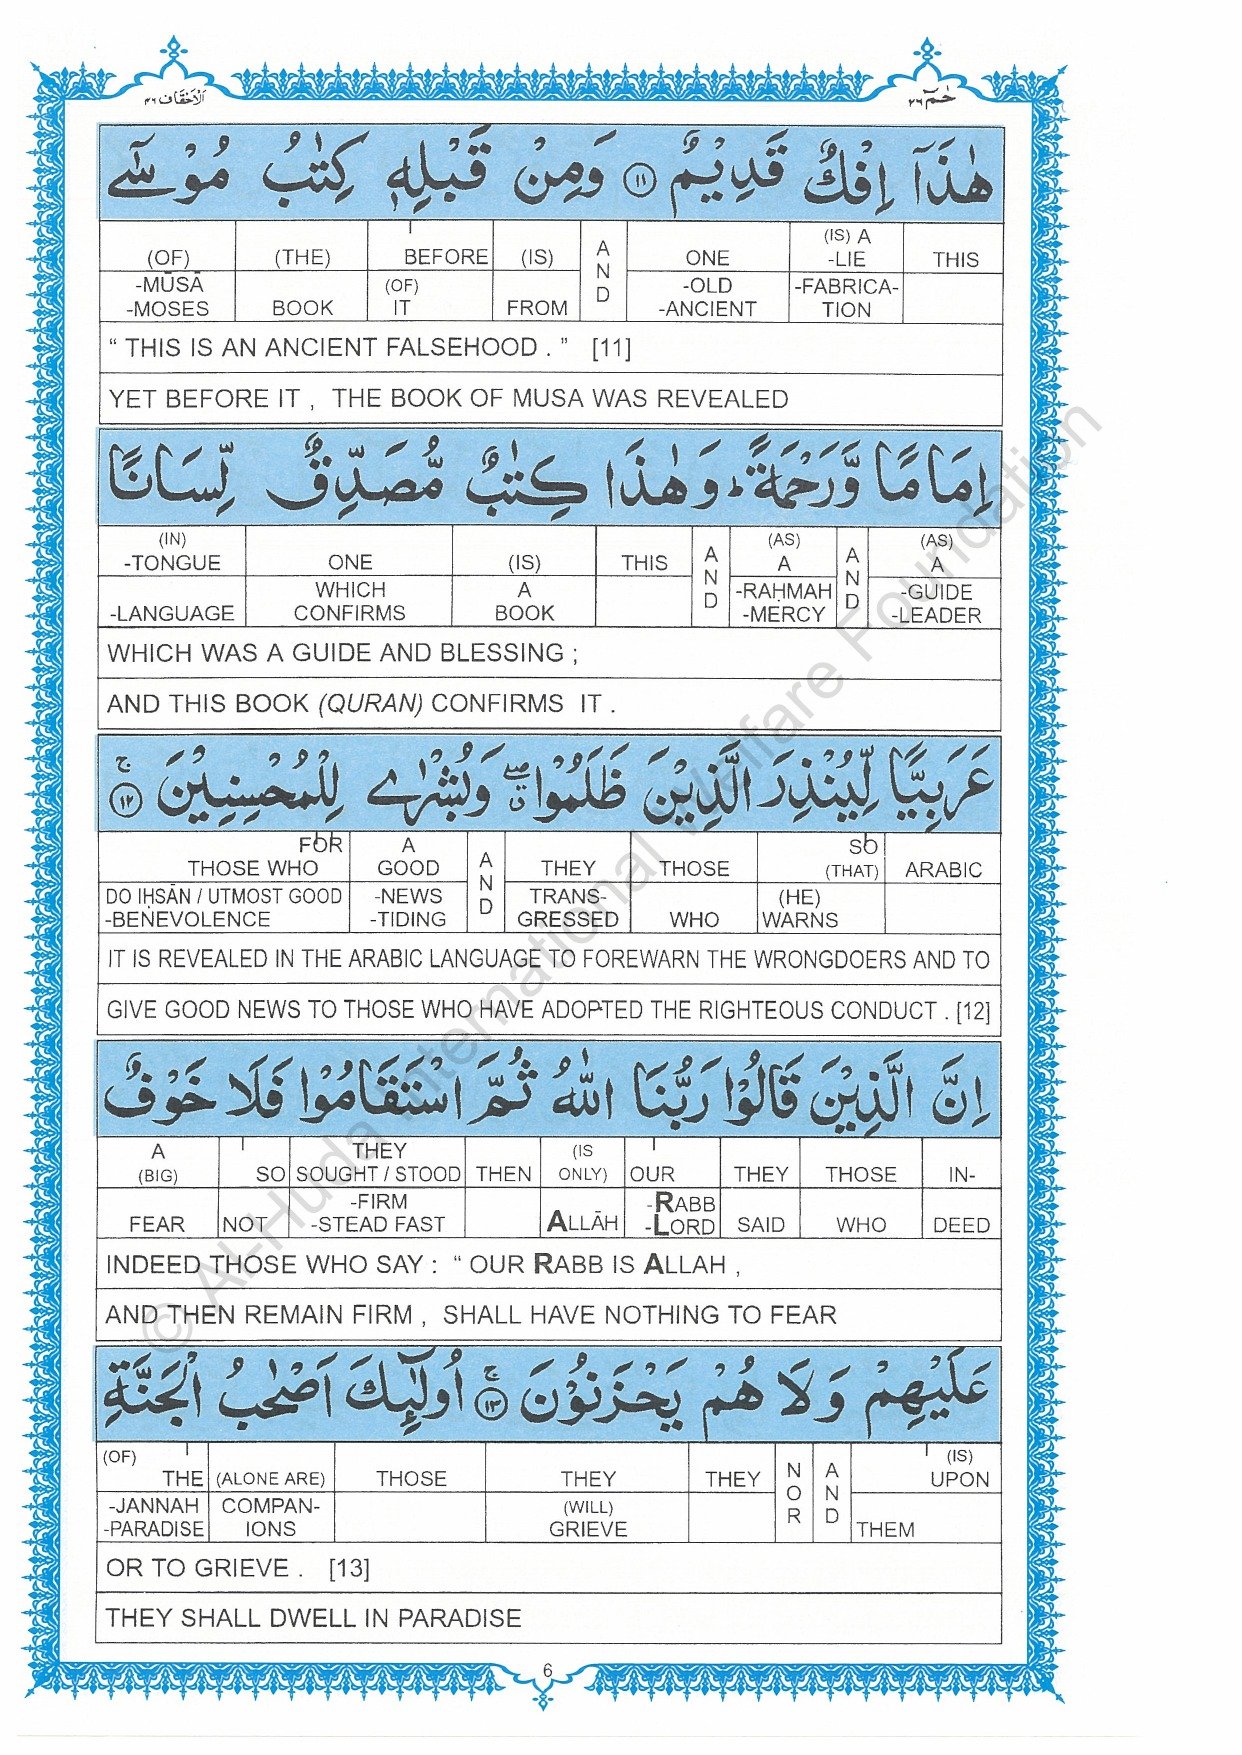 الاحقاف ٤٦
حٰمٓ ٢٦
هٰذَآ اِفْكٌ قَدِيْمٌ ١١ وَمِنْ قَبْلِهٖ كِتٰبُ مُوْسٰٓى
(OF) (THE) BEFORE (IS) AND ONE (IS) A -LIE THIS
-MŪSĀ -MOSES BOOK (OF) IT FROM -OLD -ANCIENT -FABRICA-TION
“ THIS IS AN ANCIENT FALSEHOOD . ” [11]
YET BEFORE IT , THE BOOK OF MUSA WAS REVEALED
اِمَامًا وَّرَحْمَةً ؕ وَهٰذَا كِتٰبٌ مُّصَدِّقٌ لِّسَانًا
(IN) -TONGUE ONE (IS) THIS AND (AS) A AND (AS) A
-LANGUAGE WHICH CONFIRMS A BOOK -RAḤMAH -MERCY -GUIDE -LEADER
WHICH WAS A GUIDE AND BLESSING ;
AND THIS BOOK (QURAN) CONFIRMS IT .
عَرَبِيًّا لِّيُنْذِرَ الَّذِيْنَ ظَلَمُوْا ۖق وَبُشْرٰى لِلْمُحْسِنِيْنَ ۚ ١٢
FOR THOSE WHO A GOOD AND THEY THOSE SO (THAT) ARABIC
DO IḤSĀN / UTMOST GOOD -BENEVOLENCE -NEWS -TIDING TRANS-GRESSED WHO (HE) WARNS
IT IS REVEALED IN THE ARABIC LANGUAGE TO FOREWARN THE WRONGDOERS AND TO
GIVE GOOD NEWS TO THOSE WHO HAVE ADOPTED THE RIGHTEOUS CONDUCT . [12]
اِنَّ الَّذِيْنَ قَالُوْا رَبُّنَا اللّٰهُ ثُمَّ اسْتَقَامُوْا فَلَا خَوْفٌ
A (BIG) SO THEY SOUGHT / STOOD THEN (IS ONLY) OUR THEY THOSE IN-
FEAR NOT -FIRM -STEAD FAST ALLĀH -RABB -LORD SAID WHO DEED
INDEED THOSE WHO SAY : “ OUR RABB IS ALLAH ,
AND THEN REMAIN FIRM , SHALL HAVE NOTHING TO FEAR
عَلَيْهِمْ وَلَا هُمْ يَحْزَنُوْنَ ۚ ١٣ اُولٰٓئِكَ اَصْحٰبُ الْجَنَّةِ
(OF) THE (ALONE ARE) THOSE THEY THEY NOR AND (IS) UPON
-JANNAH -PARADISE COMPAN-IONS (WILL) GRIEVE THEM
OR TO GRIEVE . [13]
THEY SHALL DWELL IN PARADISE
6
© Al-Huda International Welfare Foundation